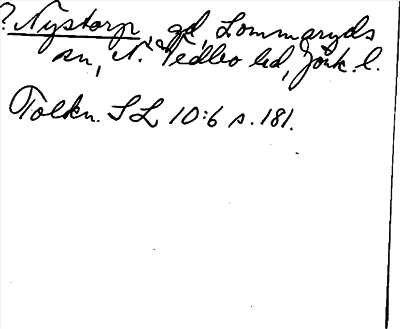 ? Nystorp, gd, Lommaryds
sn, N. Vedbo hd, Jönk. l.
Tolkn. SL 10:6 s. 181.